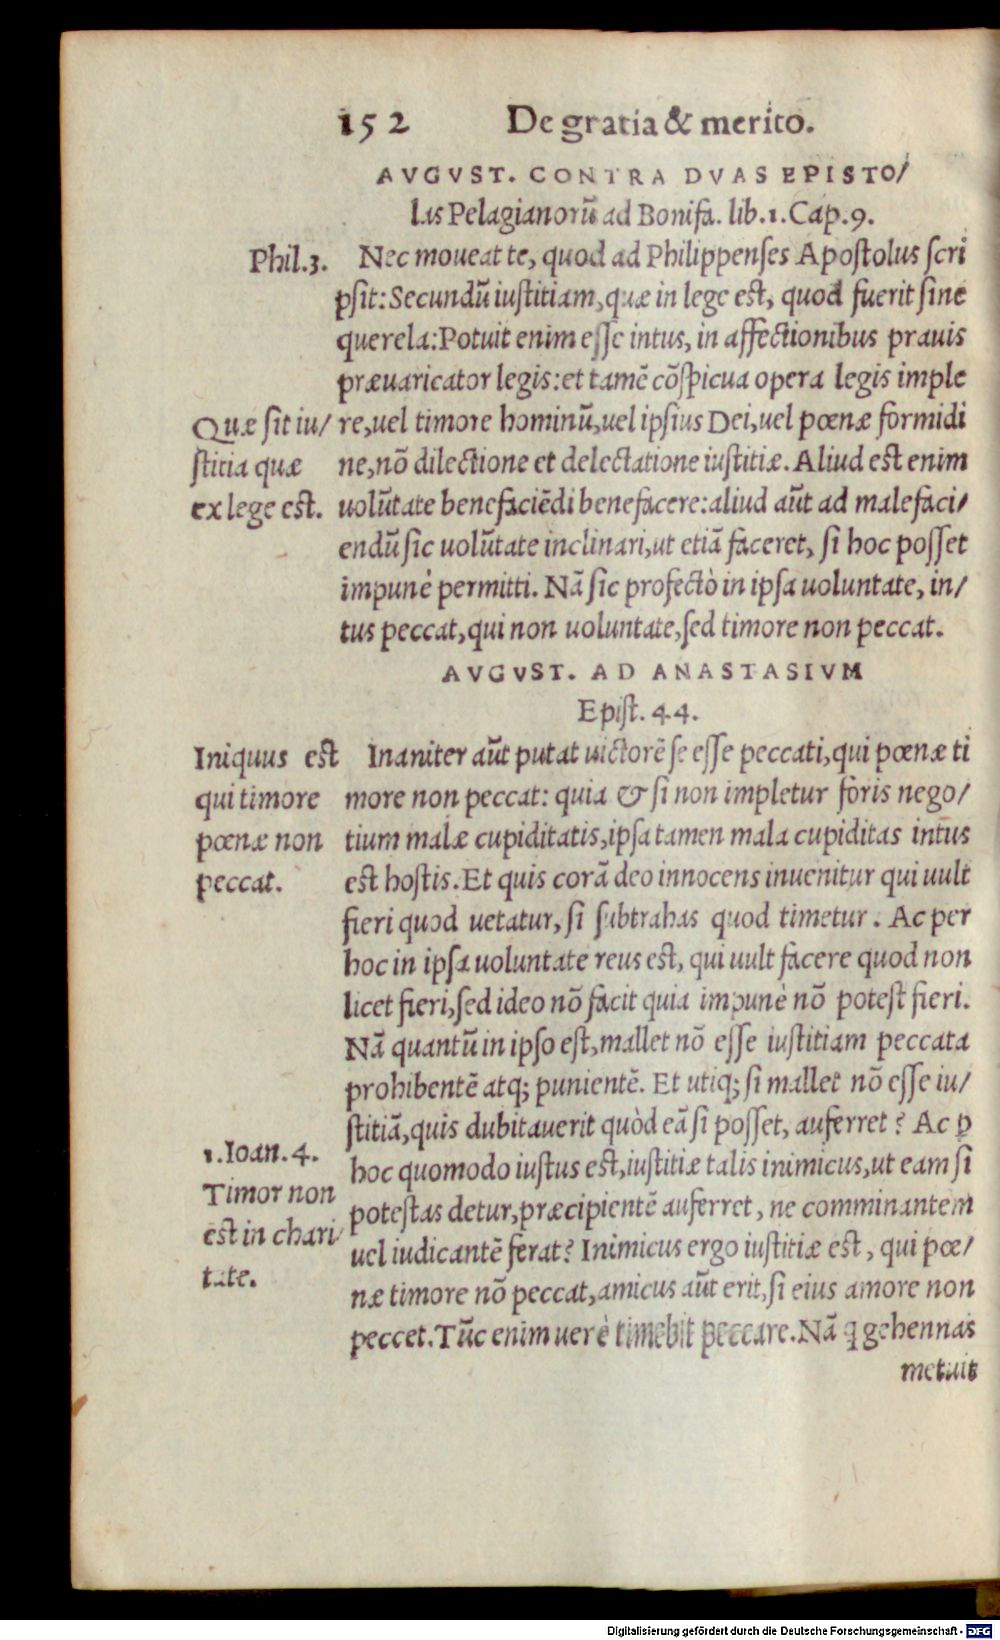 152 De gratia & merito.
AVGVST. CONTRA DVAS EPISTO/
las Pelagianorũ ad Bonifa. lib.1.Cap.9.
Phil.3.
Nec moueat te, quod ad Philippenses Apostolus scri
psit: Secundũ iustitiam, quæ in lege est, quod fuerit sine
querela: Potuit enim esse intus, in affectionibus prauis
præuaricator legis: et tamẽ cõspicua opera legis imple
Quæ sit iu/
stitia quæ
ex lege est.
re, uel timore hominũ, uel ipsius Dei, uel pœnæ formidi
ne, nõ dilectione et delectatione iustitiæ. Aliud est enim
uolũtate benefaciẽdi benefacere: aliud aũt ad malefaci/
endũ sic uolũtate inclinari, ut etiã faceret, si hoc posset
impunè permitti. Nã sic profectò in ipsa uoluntate, in/
tus peccat, qui non uoluntate, sed timore non peccat.
AVGVST. AD ANASTASIVM
Epist. 44.
Iniquus est
qui timore
pœnæ non
peccat.
Inaniter aũt putat uictorẽ se esse peccati, qui pœnæ ti
more non peccat: quia & si non impletur foris nego/
tium malæ cupiditatis, ipsa tamen mala cupiditas intus
est hostis. Et quis corã deo innocens inuenitur qui uult
fieri quod uetatur, si subtrahas quod timetur. Ac per
hoc in ipsa uoluntate reus est, qui uult facere quod non
licet fieri, sed ideo nõ facit quia impunè nõ potest fieri.
Nã quantũ in ipso est, mallet nõ esse iustitiam peccata
prohibentẽ atq; punientẽ. Et utiq; si mallet nõ esse iu/
stitiã, quis dubitauerit quòd eã si posset, auferret? Ac ꝑ
1.Ioan.4.
Timor non
est in chari/
tate.
hoc quomodo iustus est, iustitiæ talis inimicus, ut eam si
potestas detur, præcipientẽ auferret, ne comminantem
uel iudicantẽ ferat? Inimicus ergo iustitiæ est, qui pœ/
næ timore nõ peccat, amicus aũt erit, si eius amore non
peccet. Tũc enim uerè timebit peccare. Nã q gehennas
metuit
Digitalisierung gefördert durch die Deutsche Forschungsgemeinschaft - DFG